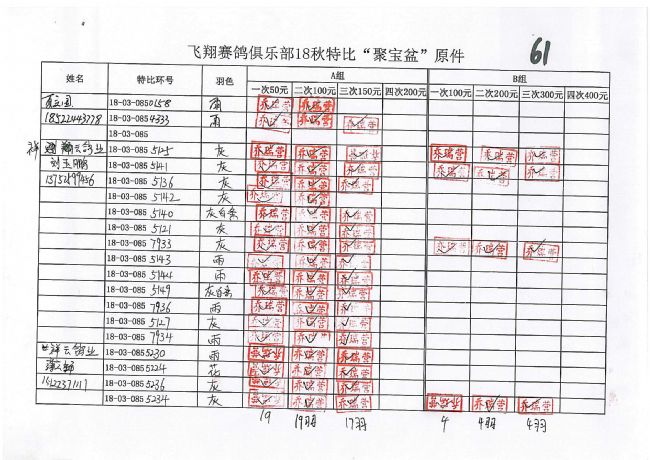 飞翔赛鸽俱乐部18秋特比“聚宝盆”原件 61
姓名 特比环号 羽色 A组 B组
一次50元 二次100元 三次150元 四次200元 一次100元 二次200元 三次300元 四次400元
18-03-0850158 雨 乔瑞营 乔瑞营
18522443778 18-03-0854333 雨 乔瑞营 乔瑞营 乔瑞营
18-03-085
祥云鸽业 18-03-085 5125 灰 乔瑞营 乔瑞营 乔瑞营 乔瑞营 乔瑞营 乔瑞营
刘玉鹏 18-03-085 5141 灰 乔瑞营 乔瑞营 乔瑞营 乔瑞营 乔瑞营 乔瑞营
18-03-085 5136 灰 乔瑞营 乔瑞营 乔瑞营
18-03-085 5142 灰 乔瑞营 乔瑞营
18-03-085 5140 灰白条 乔瑞营 乔瑞营 乔瑞营
18-03-085 5121 灰 乔瑞营 乔瑞营 乔瑞营
18-03-085 7933 灰 乔瑞营 乔瑞营 乔瑞营 乔瑞营 乔瑞营 乔瑞营
18-03-085 5143 雨 乔瑞营 乔瑞营 乔瑞营
18-03-085 5144 雨 乔瑞营 乔瑞营 乔瑞营
18-03-085 5149 灰白条 乔瑞营 乔瑞营 乔瑞营
18-03-085 7936 雨 乔瑞营 乔瑞营 乔瑞营
18-03-085 5127 灰 乔瑞营 乔瑞营 乔瑞营
18-03-085 7934 雨 乔瑞营 乔瑞营 乔瑞营
祥云鸽业 18-03-0855230 雨 乔瑞营 乔瑞营 乔瑞营
18-03-0855224 花 乔瑞营 乔瑞营 乔瑞营
18-03-085 5236 灰 乔瑞营 乔瑞营 乔瑞营
18-03-085 5234 灰 乔瑞营 乔瑞营 乔瑞营 乔瑞营 乔瑞营 乔瑞营
19 19羽 17羽 4 4羽 4羽